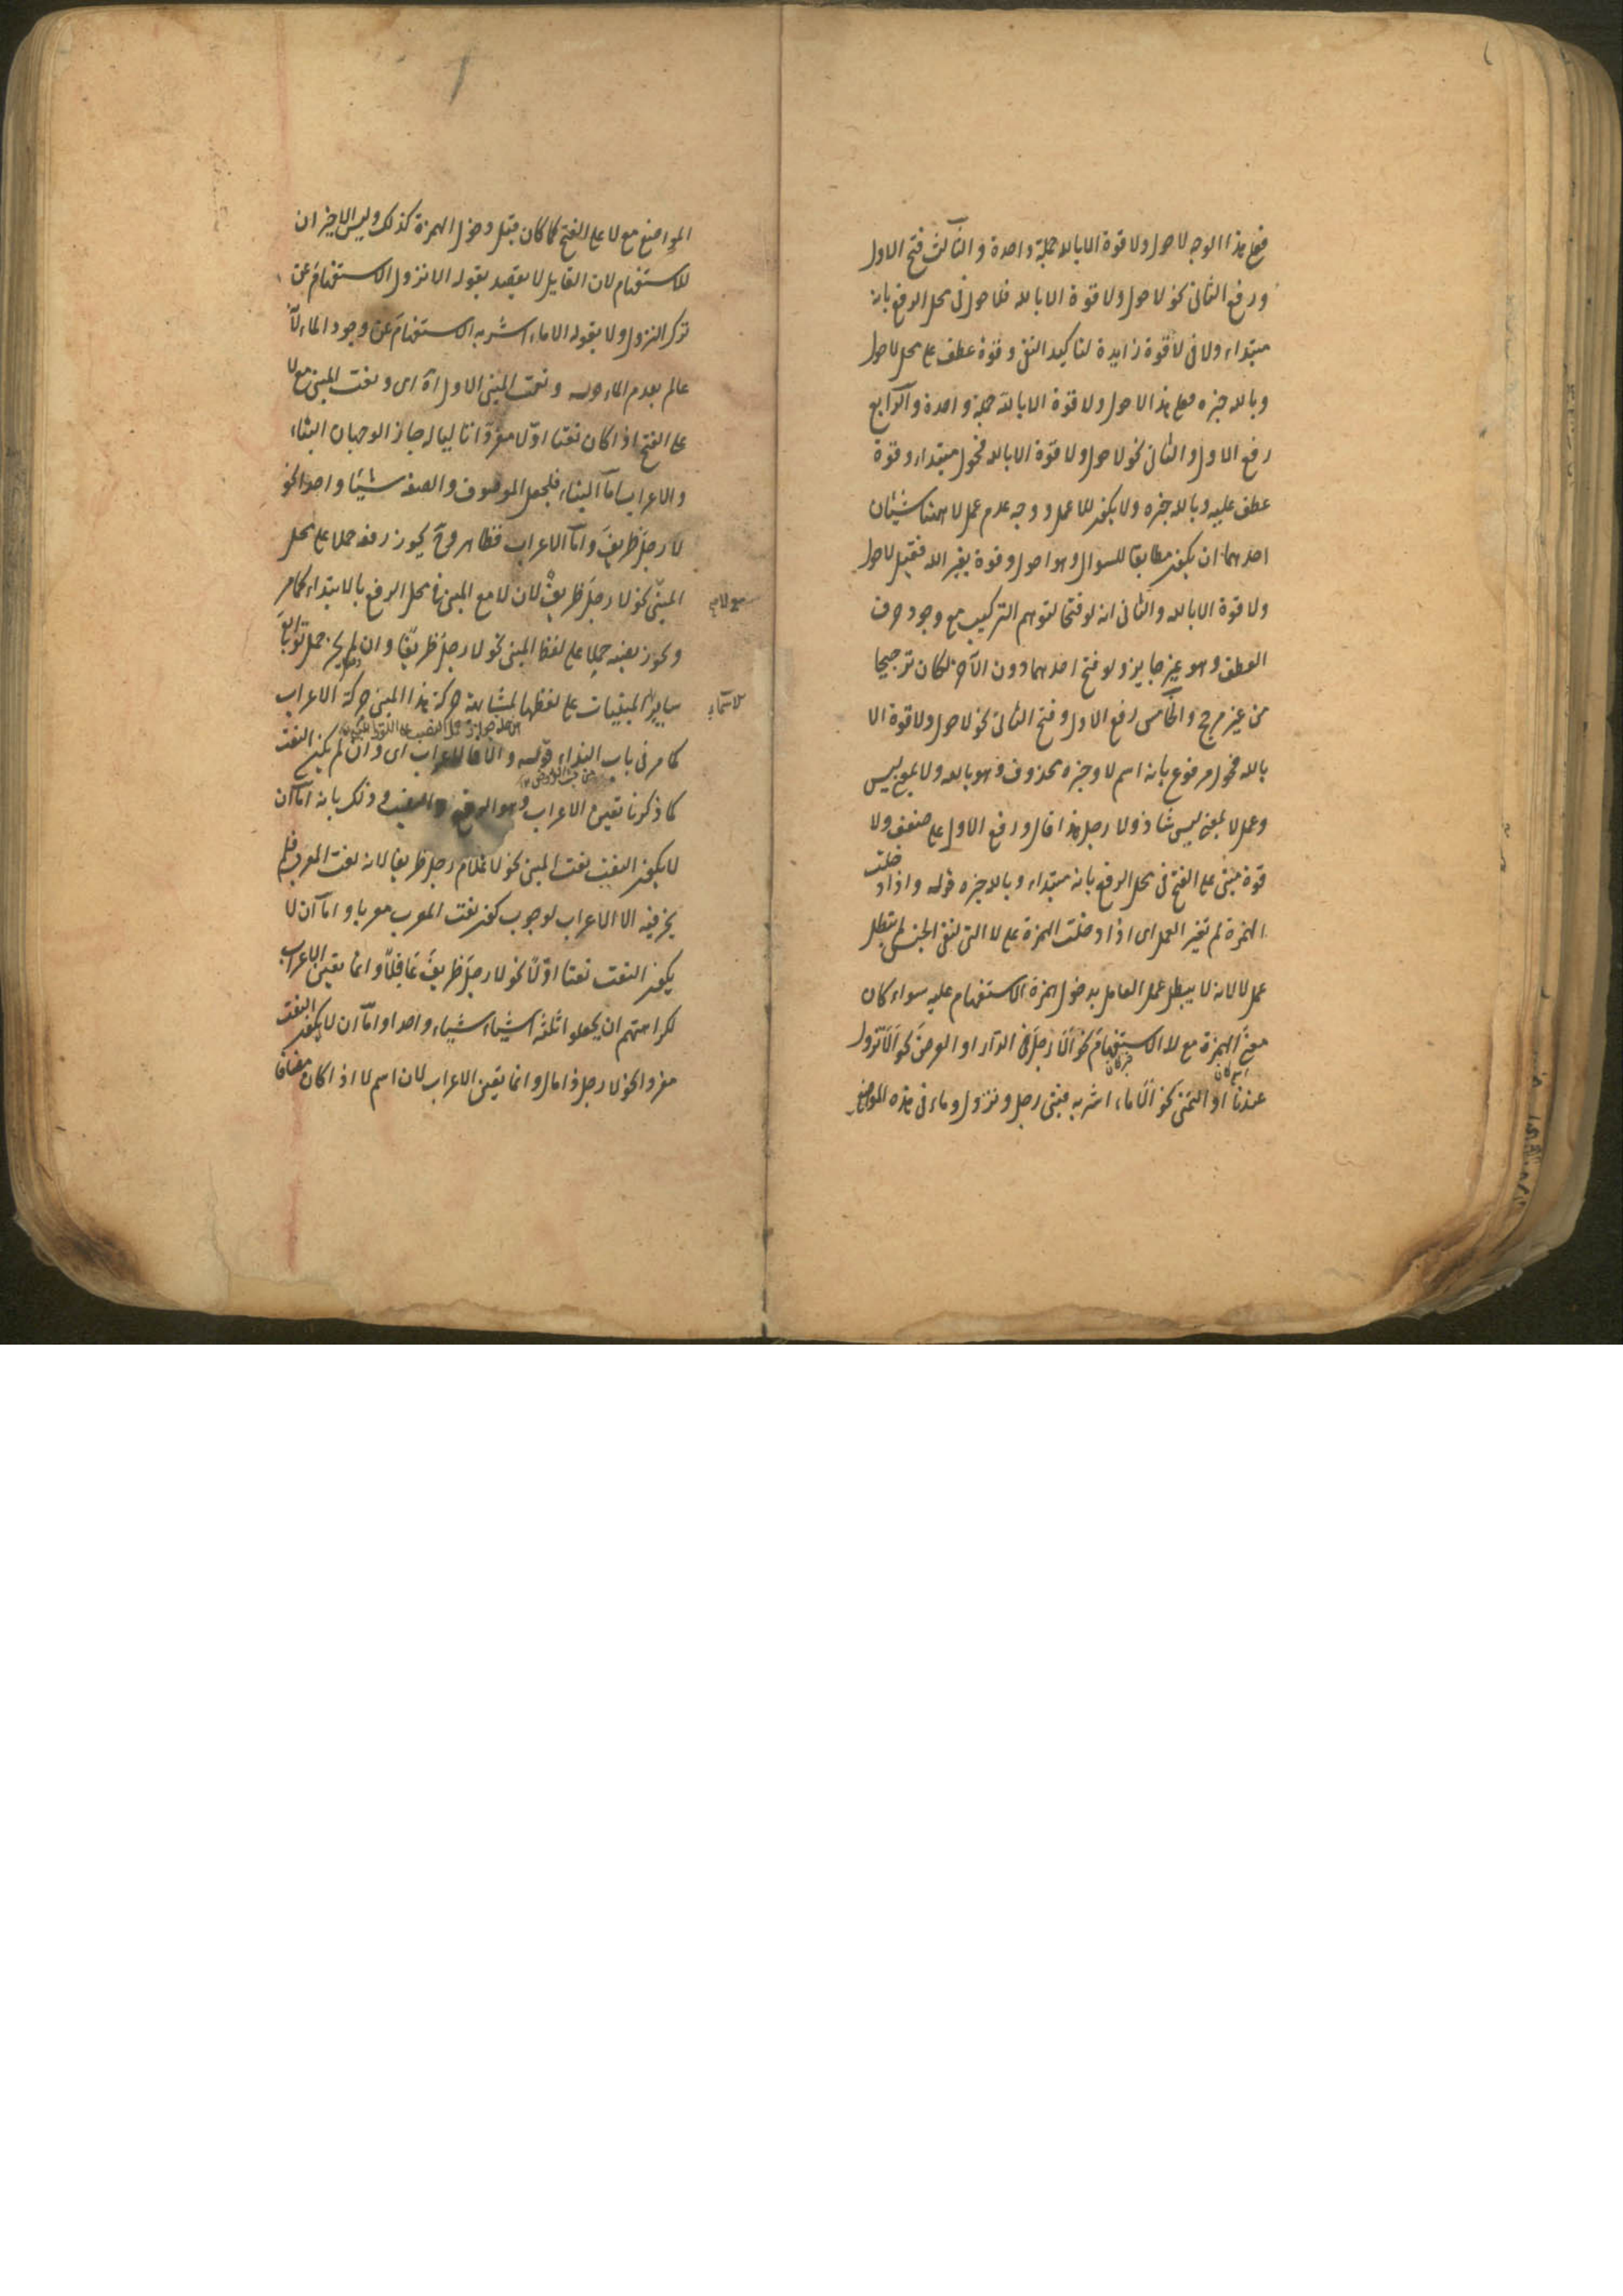 فعلى هذا الوجه لا حول ولا قوة الا بالله جملة واحدة والثالث فتح الاول
ورفع الثانى نحو لا حول ولا قوة الا بالله فلا حول فى محل الرفع بانه
مبتداء ولا فى لا قوة زايدة لتاكيد النفى وقوة عطف على محل لا حول
وبالله خبره فعلى هذا لا حول ولا قوة الا بالله جملة واحدة والرابع
رفع الاول والثانى نحو لا حول ولا قوة الا بالله فحول مبتداء وقوة
عطف عليه وبالله خبره ولا يكون للا عمل ووجه عدم عمل لا ههنا شيئان
احدهما ان يكون مطابقا للسوال وهو احول وقوة بغير الله فقيل لا حول
ولا قوة الا بالله والثانى انه لو فتحا لتوهم التركيب مع وجود حرف
العطف وهو غير جايز ولو فتح احدهما دون الآخر لكان ترجيحا
من غير مرجح والخامس رفع الاول وفتح الثانى نحو لا حول ولا قوة الا
بالله فحول مرفوع بانه اسم لا وخبره محذوف وهو بالله ولا بمعنى ليس
وعمل لا بمعنى ليس شاذ ولا رجل هذا قال ورفع الاول على ضعف ولا
قوة مبنى على الفتح فى محل الرفع بانه مبتداء وبالله خبره قوله واذا دخلت
الهمزة لم تغير العمل اى اذا دخلت الهمزة على لا التى لنفى الجنس لم تبطل
عمل لا لانه لا يبطل عمل العامل بدخول همزة الاستفهام عليه سواء كان
معنى الهمزة مع لا الاستفهام نحو الا رجل فى الدار او العرض نحو الا نزول
عندنا او التمنى نحو الا ماء اشربه فبنى رجل ونزول وماء فى هذه المواضع
المواضع مع لا على الفتح كما كان قبل دخول الهمزة كذلك وليس الاخيران
للاستفهام لان القايل لا يقصد بقوله الا نزول الاستفهام عن
ترك النزول ولا بقوله الا ماء اشربه الاستفهام عن وجود الماء لانه
عالم بعدم الماء قوله ونعت المبنى الاول اه اى ونعت المبنى مع لا
على الفتح اذا كان نعتا اولا مفردا تاليا له جاز الوجهان البناء
والاعراب اما البناء فلجعل الموصوف والصفة شيئا واحدا نحو
لا رجل ظريف واما الاعراب فظاهر وح يجوز رفعه حملا على محل
المبنى نحو لا رجل ظريف لان لا مع المبنى فى محل الرفع بالابتداء كما مر
ويجوز نصبه حملا على لفظ المبنى نحو لا رجل ظريفا وان لم يجز حمل توابع
ساير المبنيات على لفظها لمشابهة حركة هذا المبنى حركة الاعراب
كما مر فى باب النداء قوله والا فالاعراب اى وان لم يكن النعت
كما ذكرنا تعين الاعراب وهو الرفع والنصب وذلك بانه اما ان
لا يكون النعت نعت المبنى نحو لا غلام رجل ظريفا لانه نعت المعرب فلم
يجز فيه الا الاعراب لوجوب كون نعت المعرب معربا واما ان لا
يكون النعت نعتا اولا نحو لا رجل ظريف عاقلا وانما تعين الاعراب
لكراهتهم ان يجعلوا ثلثة اشياء شيئا واحدا واما ان لا يكون النعت
مفردا نحو لا رجل ذا مال وانما تعين الاعراب لان اسم لا اذا كان مضافا